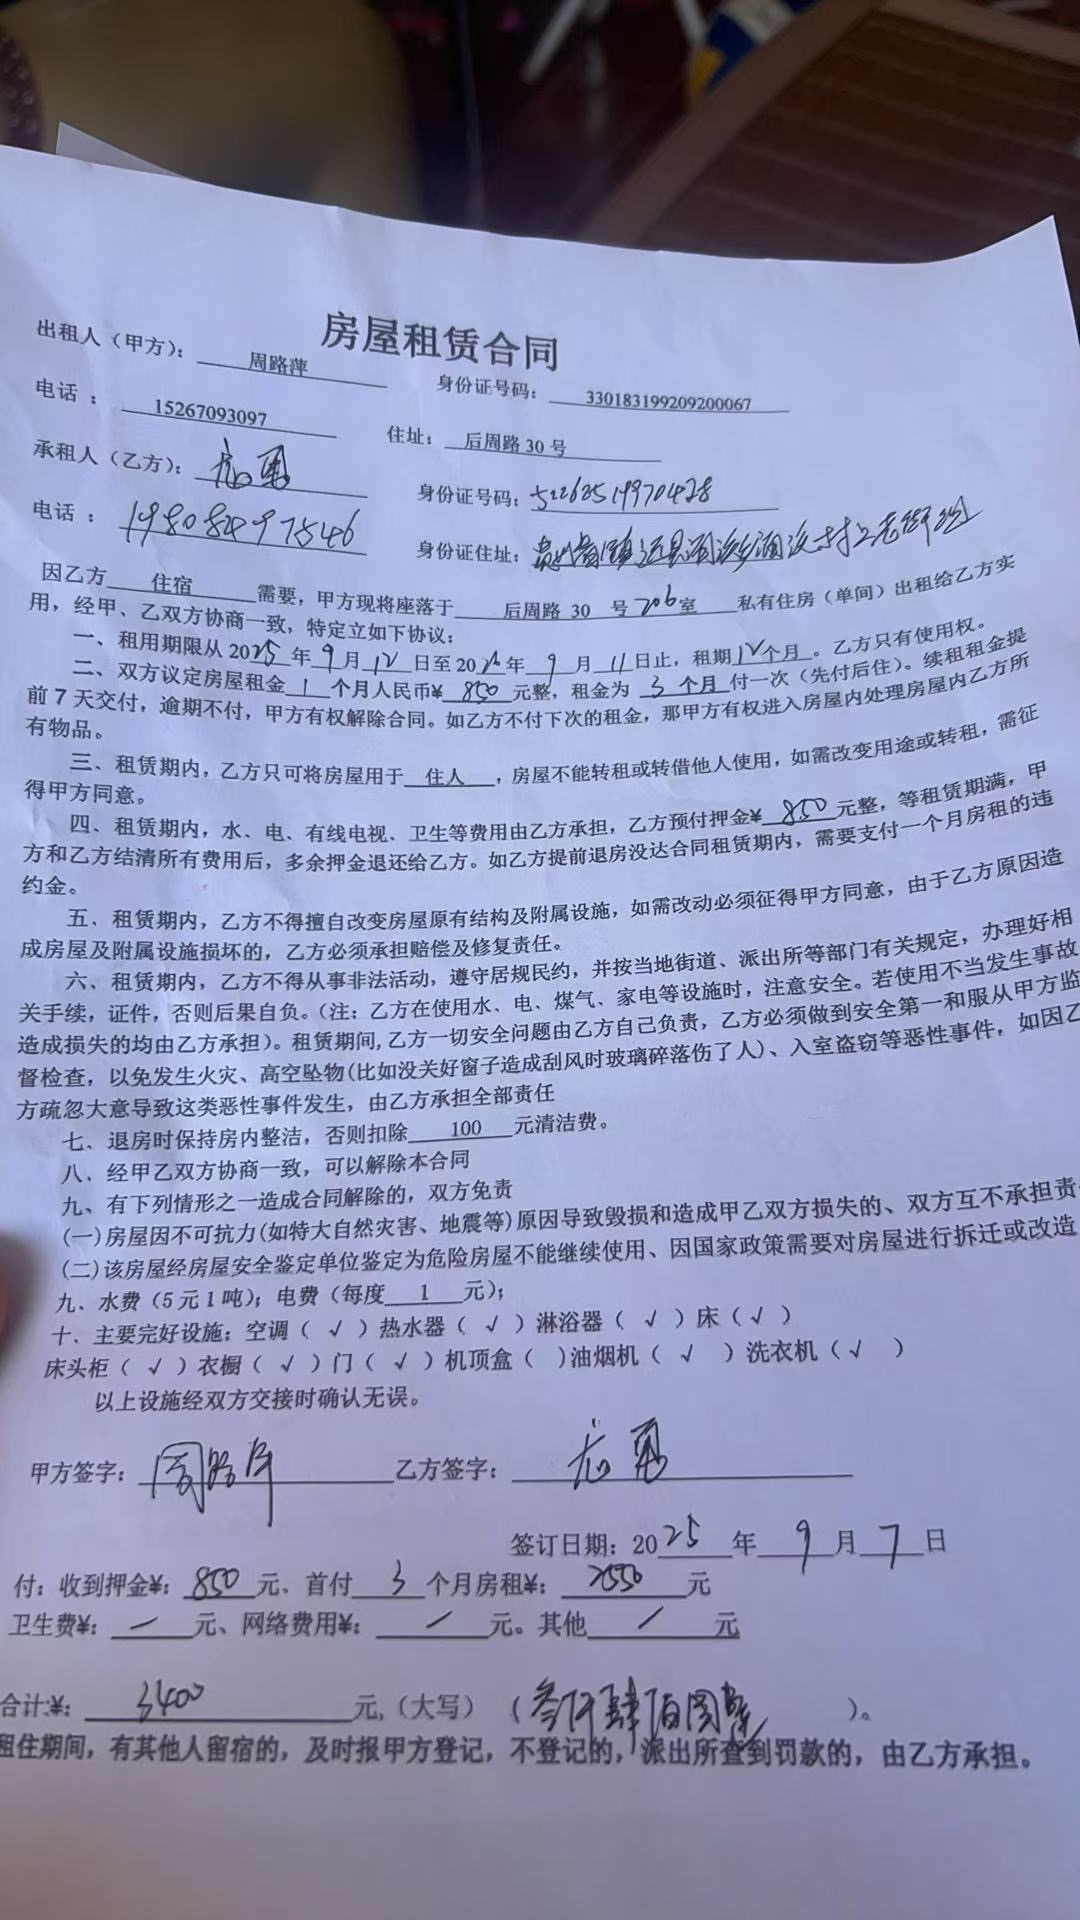 房屋租赁合同
出租人（甲方）： 周路萍 身份证号码： 330183199209200067
电话 ： 15267093097 住址： 后周路 30 号
承租人（乙方）： 勇 身份证号码：
电话 ： 身份证住址：
因乙方 住宿 需要，甲方现将座落于 后周路 30 号 206 室 私有住房（单间）出租给乙方实
用，经甲、乙双方协商一致，特定立如下协议：
一、租用期限从 2025 年 9 月 12 日至 2026 年 9 月 11 日止，租期 12 个月 。乙方只有使用权。
二、双方议定房屋租金 1 个月人民币¥ 850 元整，租金为 3 个月 付一次（先付后住）。续租租金提
前 7 天交付，逾期不付，甲方有权解除合同。如乙方不付下次的租金，那甲方有权进入房屋内处理房屋内乙方所
有物品。
三、租赁期内，乙方只可将房屋用于 住人 ，房屋不能转租或转借他人使用，如需改变用途或转租，需征
得甲方同意。
四、租赁期内，水、电、有线电视、卫生等费用由乙方承担，乙方预付押金¥ 850 元整，等租赁期满，甲
方和乙方结清所有费用后，多余押金退还给乙方。如乙方提前退房没达合同租赁期内，需要支付一个月房租的违
约金。
五、租赁期内，乙方不得擅自改变房屋原有结构及附属设施，如需改动必须征得甲方同意，由于乙方原因造
成房屋及附属设施损坏的，乙方必须承担赔偿及修复责任。
六、租赁期内，乙方不得从事非法活动，遵守居规民约，并按当地街道、派出所等部门有关规定，办理好相
关手续，证件，否则后果自负。（注：乙方在使用水、电、煤气、家电等设施时，注意安全。若使用不当发生事故
造成损失的均由乙方承担）。租赁期间,乙方一切安全问题由乙方自己负责，乙方必须做到安全第一和服从甲方监
督检查，以免发生火灾、高空坠物(比如没关好窗子造成刮风时玻璃碎落伤了人)、入室盗窃等恶性事件，如因乙
方疏忽大意导致这类恶性事件发生，由乙方承担全部责任
七、退房时保持房内整洁，否则扣除 100 元清洁费。
八、经甲乙双方协商一致，可以解除本合同
九、有下列情形之一造成合同解除的，双方免责
(一)房屋因不可抗力(如特大自然灾害、地震等)原因导致毁损和造成甲乙双方损失的、双方互不承担责
(二)该房屋经房屋安全鉴定单位鉴定为危险房屋不能继续使用、因国家政策需要对房屋进行拆迁或改造
九、水费（5 元 1 吨）；电费（每度 1 元）；
十、主要完好设施：空调（ √ ）热水器（ √ ）淋浴器（ √ ）床（ √ ）
床头柜（ √ ）衣橱（ √ ）门（ √ ）机顶盒（ ）油烟机（ √ ）洗衣机（ √ ）
以上设施经双方交接时确认无误。
甲方签字： 周路萍 乙方签字： 勇
签订日期：2025 年 9 月 7 日
付：收到押金¥： 850 元、首付 3 个月房租¥： 2550 元
卫生费¥： / 元、网络费用¥： / 元。其他 / 元
合计:¥： 3400 元,（大写）（叁仟肆佰圆整 ）。
租住期间，有其他人留宿的，及时报甲方登记，不登记的，派出所查到罚款的，由乙方承担。